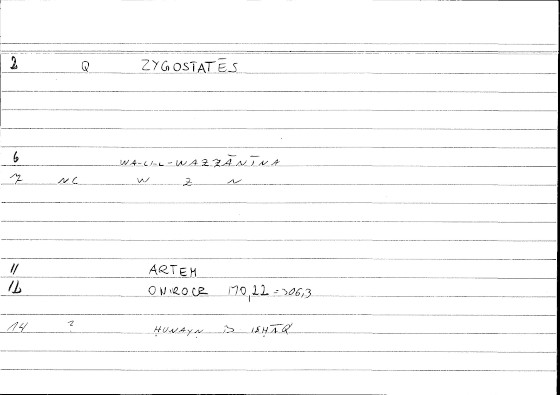 2 Q ZYGOSTATĒS
6 WA-LI-L-WAZZĀNĪNA
7 NC W Z N
11 ARTEM
12 ONIROCR 170,22 = 306,3
14 ? ḤUNAYN B ISḤĀQ